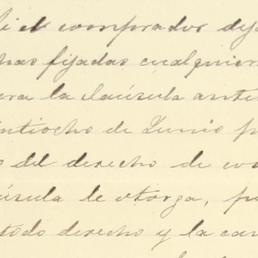 si el comprador dej
has fijadas cualquier
era la claúsula ante
intiocho de Junio p
o del derecho de co
úsula le otorga, pu
todo derecho y la can